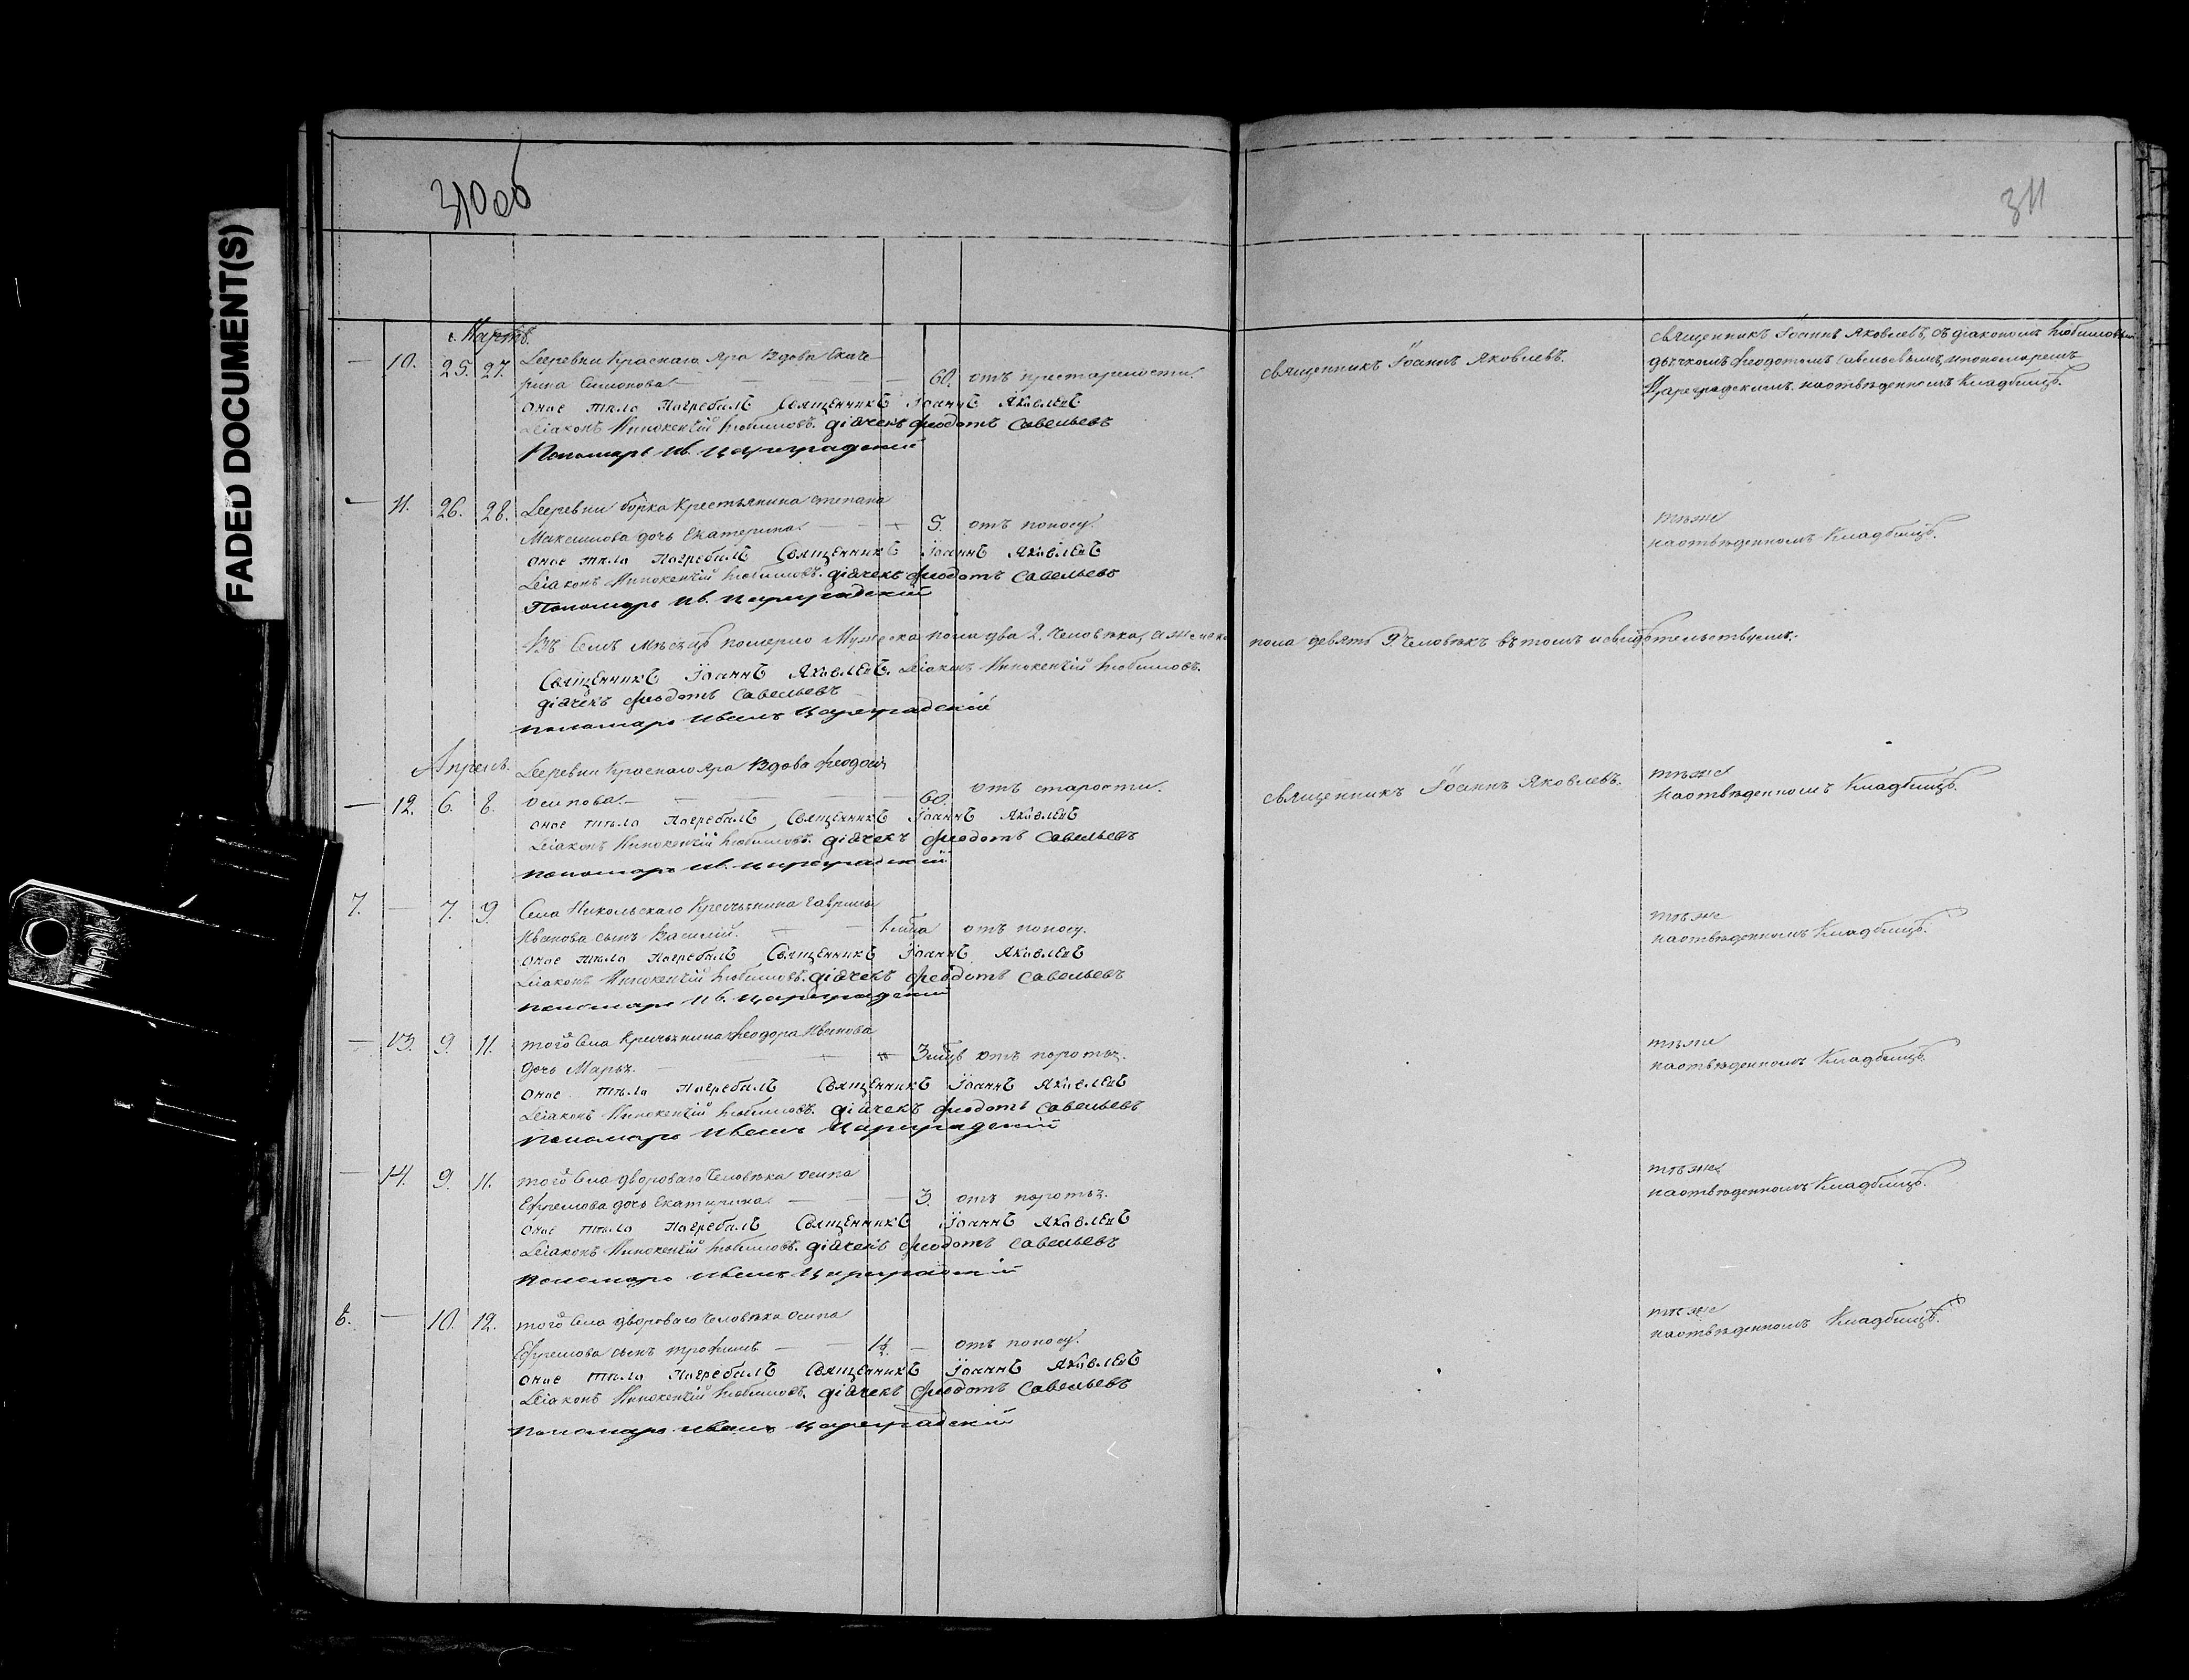 FADED DOCUMENT(S)
310 об
311
Мартъ.
— 10. 25. 27. Деревни Краснаго Яра Вдова Екате-
рина Симонова — 60. отъ престарелости.
оное тѣло Погребалъ Священникъ Іоаннъ Яковлевъ
Діаконъ Иннокентій Любимовъ. діячекъ Феодотъ Савельевъ
Пономарь Ив. Цареградскій
священникъ Іоаннъ Яковлевъ.
священникъ Іоаннъ Яковлевъ, съ діакономъ Любимовымъ
дьячкомъ Феодотомъ Савельевымъ, и пономаремъ
Цареградскимъ. на отведенномъ Кладбищѣ.
— 11. 26. 28. Деревни борка Крестьянина степана
Максимова дочь Екатерина. — 5. отъ поносу.
оное тѣло Погребалъ Священникъ Іоаннъ Яковлевъ
Діаконъ Иннокентій Любимовъ. діячекъ Феодотъ Савельевъ
Пономарь Ив. Цареградскій
тѣже
на отведенномъ Кладбищѣ.
Въ семъ мѣсяцѣ померло Мужеска пола два 2. человѣка, а женска пола девять 9. Человѣкъ въ томъ и свидѣтельствуемъ:
Священникъ Іоаннъ Яковлевъ. Діаконъ Иннокентій Любимовъ.
діячекъ Феодотъ Савельевъ
пономарь Иванъ Цареградскій
Апрель. Деревни Краснаго Яра Вдова Феодосія
— 12. 6. 8. осипова. — 60. отъ старости.
оное тѣло Погребалъ Священникъ Іоаннъ Яковлевъ
Діаконъ Иннокентій Любимовъ. діячекъ Феодотъ Савельевъ
пономарь Ив. Цареградскій
священникъ Іоаннъ Яковлевъ.
тѣже
на отведенномъ Кладбищѣ.
7. — 7. 9. Села Никольскаго Крестьянина Гаврила
Иванова сынъ Василій. — отъ поносу.
оное тѣло Погребалъ Священникъ Іоаннъ Яковлевъ
Діаконъ Иннокентій Любимовъ. діячекъ Феодотъ Савельевъ
пономарь Ив. Цареградскій
тѣже
на отведенномъ Кладбищѣ.
— 13. 9. 11. того Села Крестьянина Феодора Иванова
дочь Марья. — 3 мцѣ отъ
оное тѣло Погребалъ Священникъ Іоаннъ Яковлевъ
Діаконъ Иннокентій Любимовъ. діячекъ Феодотъ Савельевъ
пономарь Иванъ Цареградскій
тѣже
на отведенномъ Кладбищѣ.
— 14. 9. 11. того Села двороваго Человѣка осипа
Ефремова дочь Екатерина. — 3. отъ
оное тѣло Погребалъ Священникъ Іоаннъ Яковлевъ
Діаконъ Иннокентій Любимовъ. діячекъ Феодотъ Савельевъ
пономарь Иванъ Цареградскій
тѣже
на отведенномъ Кладбищѣ.
8. — 10. 12. того Села двороваго человѣка Осипа
Ефремова сынъ трофимъ — 1½ — отъ поносу.
оное тѣло Погребалъ Священникъ Іоаннъ Яковлевъ
Діаконъ Иннокентій Любимовъ. діячекъ Феодотъ Савельевъ
пономарь Иванъ Цареградскій
тѣже
на отведенномъ Кладбищѣ.